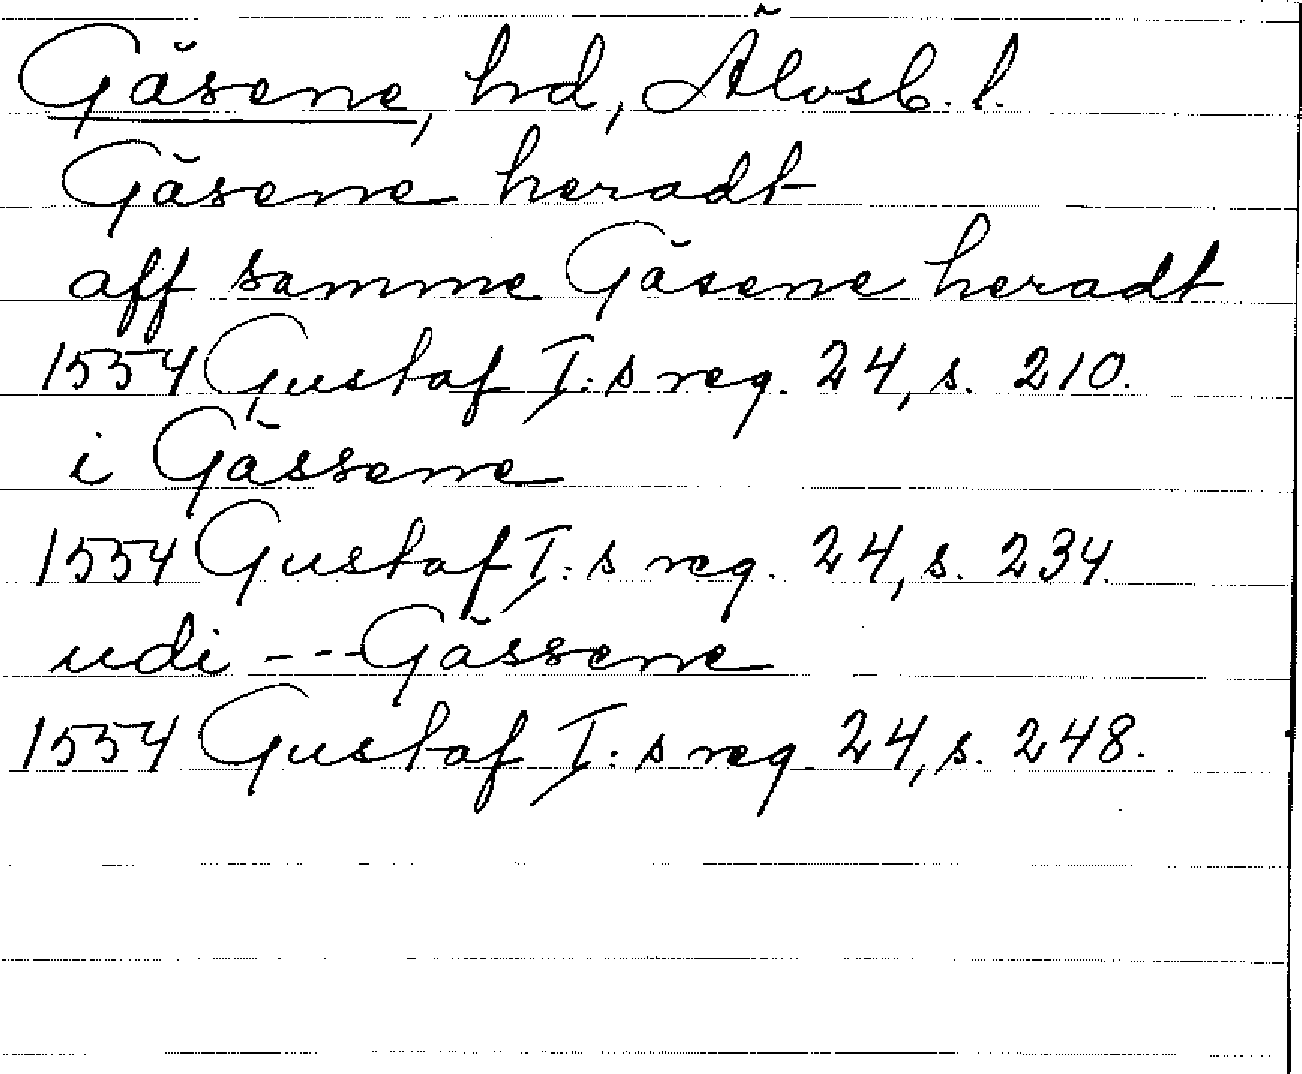 Gäsene, hd, Älvsb. l.
Gäsene heradt
aff samme Gäsene heradt
1554 Gustaf I:s reg. 24, s. 210.
i Gässene
1554 Gustaf I:s reg. 24, s. 234.
udi --- Gässene
1554 Gustaf I:s reg. 24, s. 248.